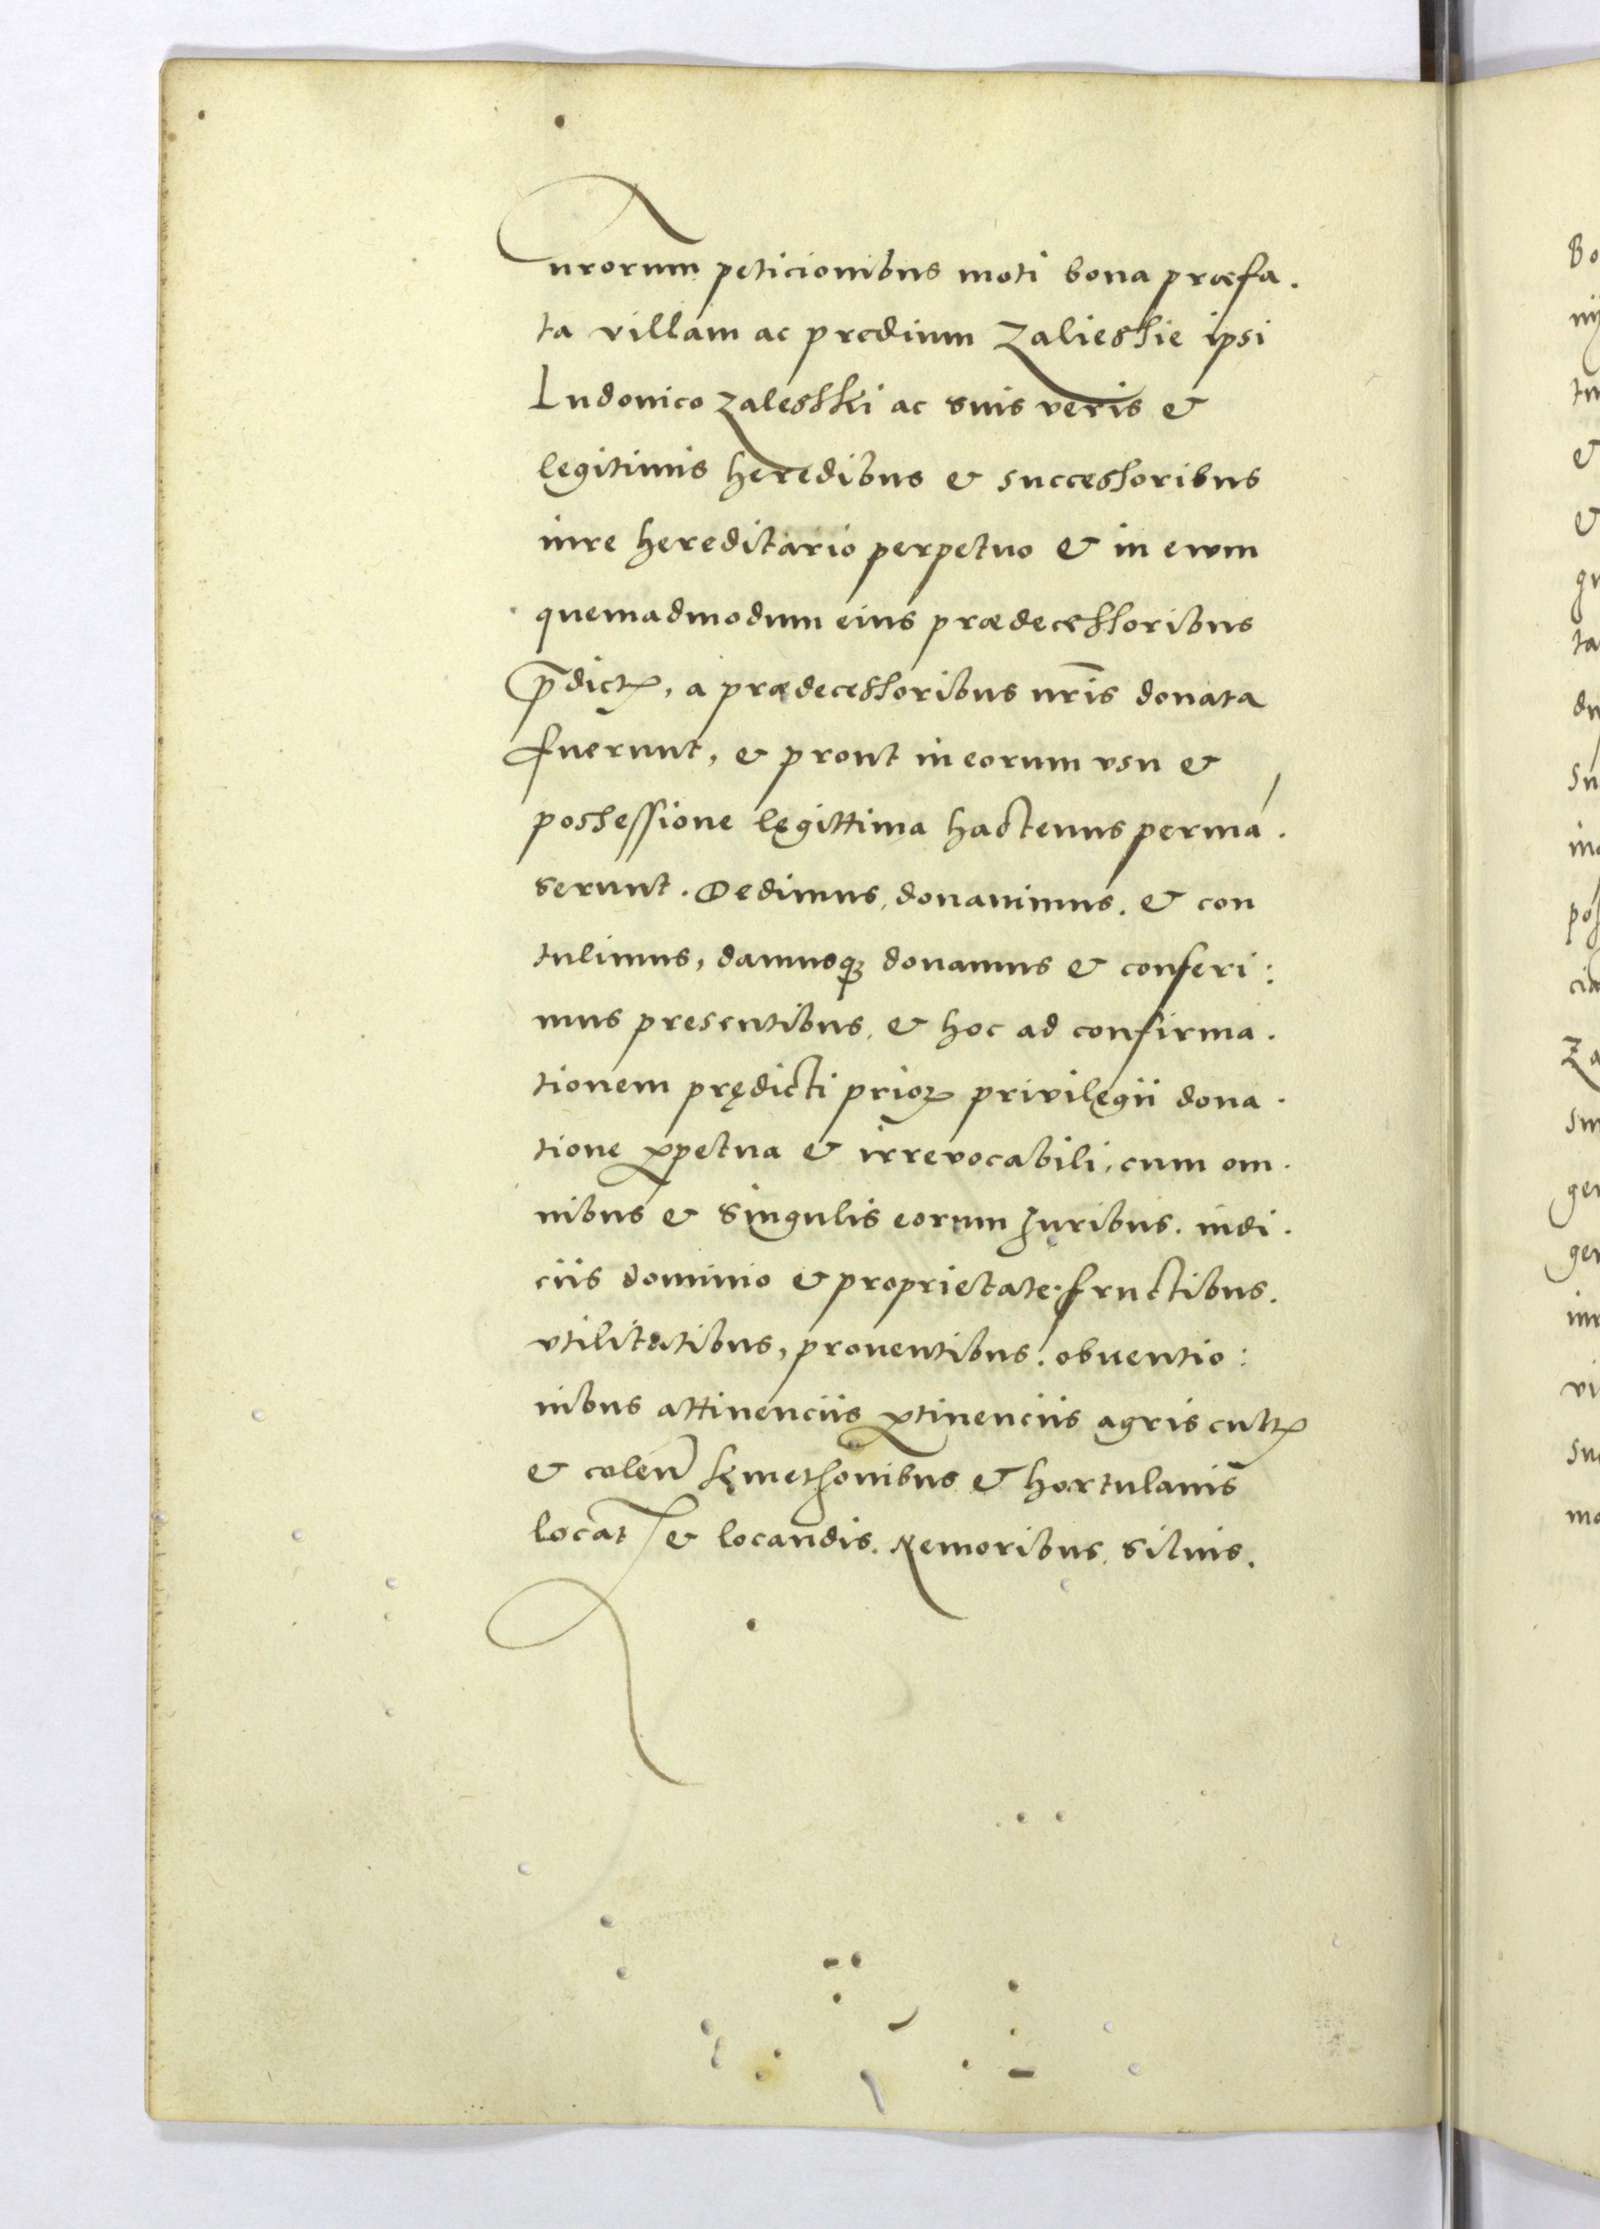 nrorum peticionibus moti bona præfa.
ta villam ac predium Zalieshie ipsi
Ludouico Zaleshki ac suis veris &
legitimis heredibus & successoribus
iure hereditario perpetuo & in ewm
quemadmodum eius prædecessoribus
p̄dictꝭ, a prædecessoribus nr̄is donata
fuerunt, & prout in eorum vsu &
possessione legittima hactenus perma.
serunt. Dedimus, donauimus. & con
tulimus, damusqꝫ donamus & conferi:
mus presentibus, & hoc ad confirma.
tionem prędicti prioꝝ privilegii dona.
tione ꝑpetua & irrevocabili, cum om.
nibus & singulis eorum Juribus. iudi.
ciis dominio & proprietate. fructibus.
vtilitatibus, prouentibus. obuentio:
nibus attinenciis ꝑtinenciis agris cultꝭ
& colen̄ kmethonibus & hortulanis
locat & locandis. Nemoribus, siluis.
Bo
nij
tu
&
&
gu
ta
du
su
ina
pos
cia
Za
sm
gen
gen
iur
vi
suc
ma